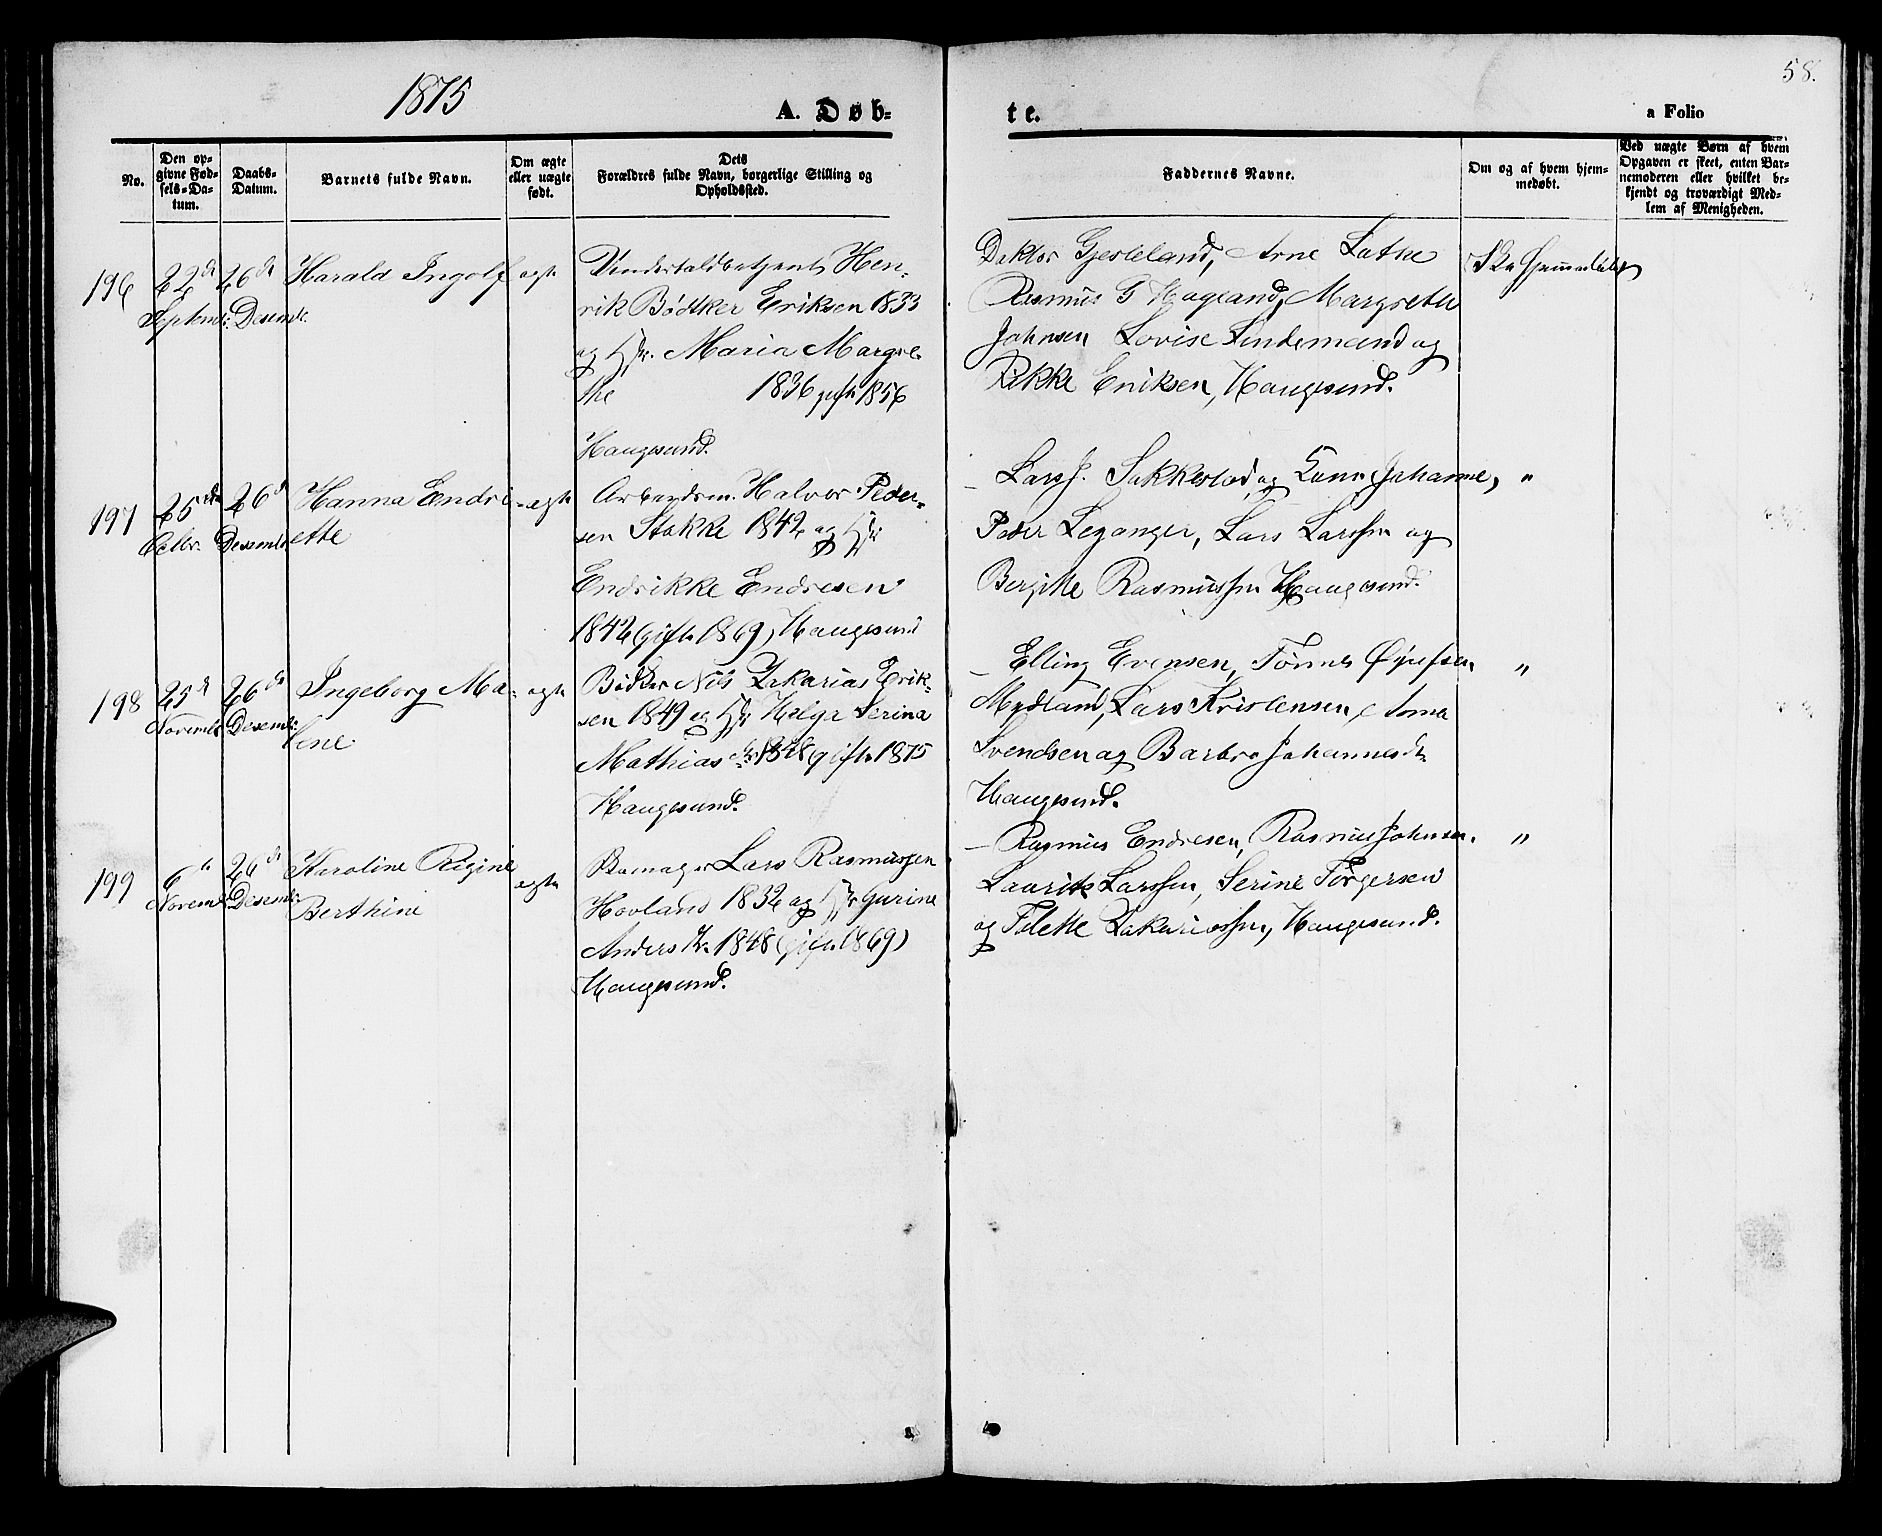 1875
A. Døb-
te.
a Folio
58.
No.
Den op-
givne Fød-
sels-Da-
tum.
Daabs-
Datum.
Barnets fulde Navn.
Om ægte
eller uægte
født.
Dets
Forældres fulde Navn, borgerlige Stilling og
Opholdssted.
Faddernes Navne.
Om og af hvem hjem-
medøbt.
Ved uægte Børn af hvem
Opgaven er skeet, enten Bar-
nemoderen eller hvilket be-
kjendt og troværdigt Med-
lem af Menigheden.
196
22d
Septemb.
26d
Desemb.
Harald Ingolf
ægte
Hen-
rik Bødtker Eriksen 1833
og Maria Margre-
the 1836 gift 1856
Haugesund.
Doktor Gjesteland, Arne
Rasmus G Hagland, Margrethe
Johnsen Lovise Lindemand og
Rikke Eriksen, Haugesund.
Ikke hjemmedøbt
197
25de
Octbr.
26d
Desemb.
Hanna Endri-
ette
ægte
Arbeidsm. Halvor Peder-
sen Stokke 1842 og
Endrikke Endresen
1842 (gift 1869) Haugesund
Lars J. Sakkestad og Johanne,
Peder Leganger, Lars Larssen og
Bergitte Rasmussen Haugesund.
"
198
25d
Novemb.
26de
Desemb.
Ingeborg Ma-
lene
ægte
Bødker Nils Zakarias Erik-
sen 1849 og Helga Serina
Mathiasdtr. 1848 gift 1875
Haugesund.
Elling Evensen, Tønnes
Mydland, Lars Kristensen,
Svendsen og Barbro Johannesdtr
Haugesund.
"
199
6te
Novemb.
26de
Desemb.
Karoline Regine
Berthine
ægte
Skomager Lars Rasmussen
Hovland 1832 og Gurine
Andersdtr. 1848 (gift 1869)
Haugesund.
Rasmus Endresen, Rasmus Johnsen.
Laurits Larssen, Serine Torgersen
og Zakariassen, Haugesund.
"